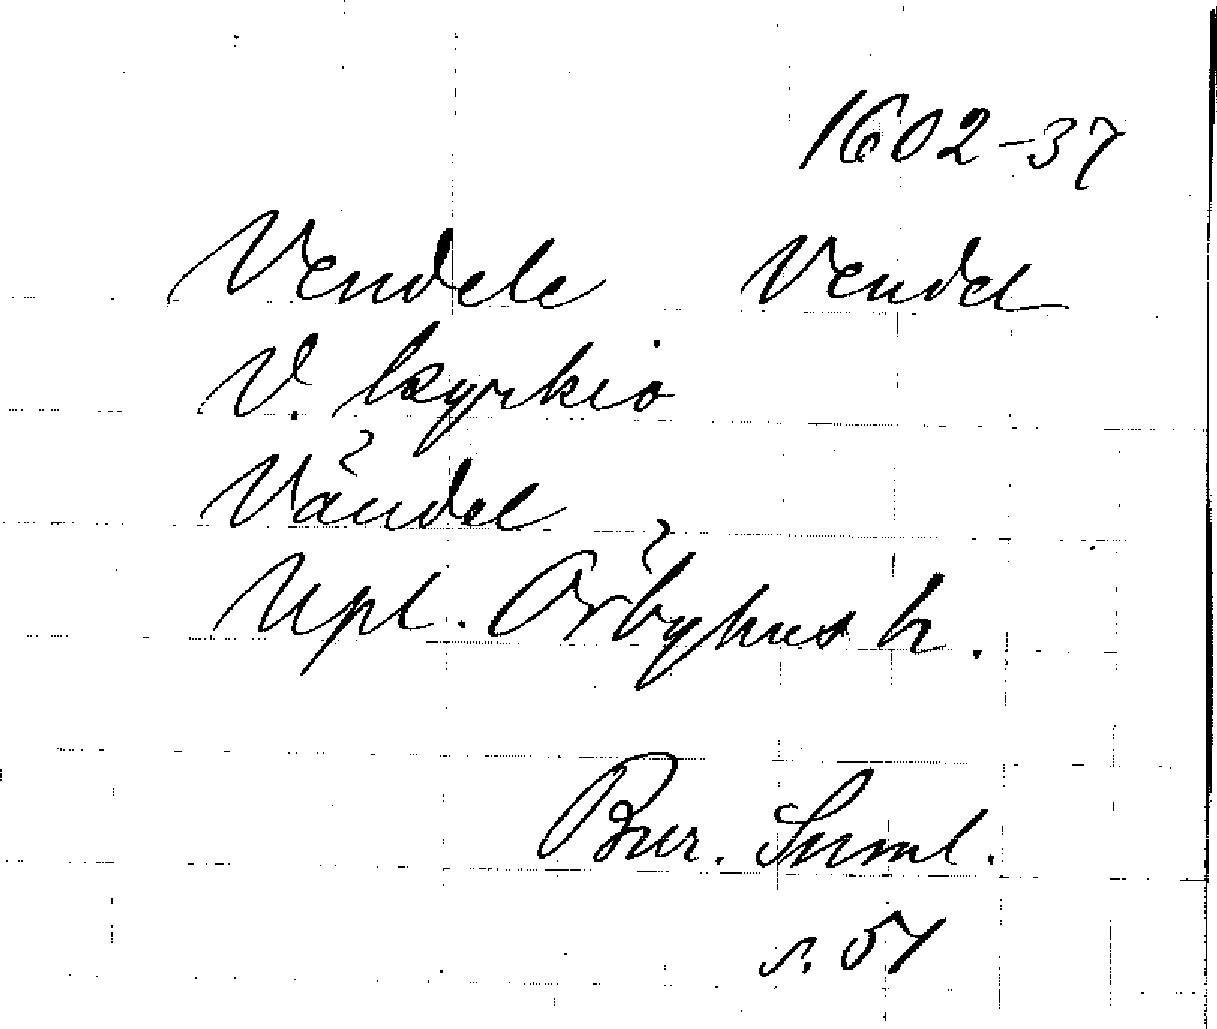 1602-37
Vendele Vendel
V. kyrkio
Vändel
Upl. Örbyhus h.
Bur. Suml.
s. 51